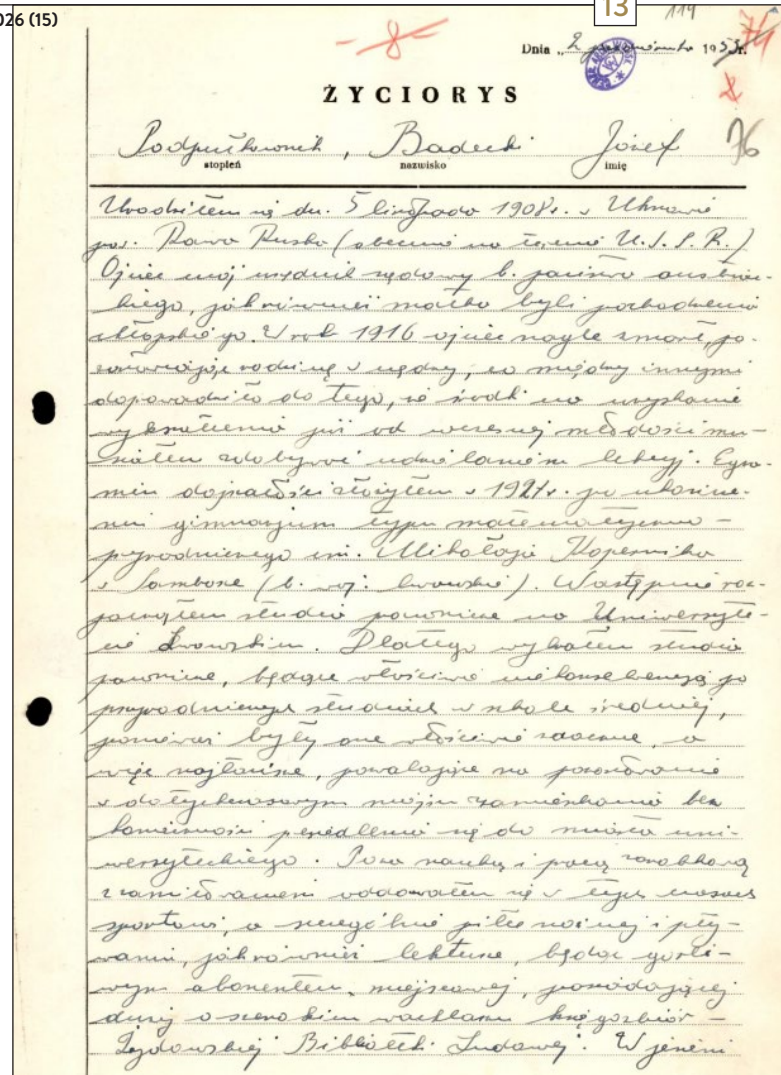 026 (15)
13
114
- 8 -
74
Dnia „2 października 1953r.
ŻYCIORYS
76
Podpułkownik, Badecki Józef
stopień nazwisko imię
Urodziłem się dn. 5 listopada 1908r. w Uhnowie
pow. Rawa Ruska (obecnie na terenie U.S.S.R.)
Ojciec mój urzędnik sądowy b. państwa austriac-
kiego, jak również matka byli pochodzenia
chłopskiego. W rok 1916 ojciec nagle zmarł, po-
zostawiając rodzinę w nędzy, co między innymi
doprowadziło do tego, że środki na uzyskanie
wykształcenia już od wczesnej młodości mu-
siałem zdobywać udzielaniem lekcyj. Egza-
min dojrzałości złożyłem w 1927r. po ukończe-
niu gimnazjum typu matematyczno-
przyrodniczego im. Mikołaja Kopernika
w Samborze (b. woj. lwowskie). Następnie roz-
począłem studia prawnicze na Uniwersyte-
cie Lwowskim. Dlatego wybrałem studia
prawnicze, będące właściwie niekonsekwencją po
przyrodniczych studiach w szkole średniej,
ponieważ były one właściwie zaoczne, a
więc najtańsze, pozwalające na pozostawanie
w dotychczasowym mojem zamieszkaniu bez
konieczności przesiedlenia się do miasta uni-
wersyteckiego. Poza nauką i pracą zarobkową
z zamiłowaniem oddawałem się w tych czasach
sportowi, a szczególnie piłce nożnej i pły-
waniu, jak również lekturze, będąc gorli-
wym abonentem, miejscowej, posiadającej
duży o szerokim wachlarzu księgozbiór -
Żydowskiej Biblioteki Ludowej. W jesieni